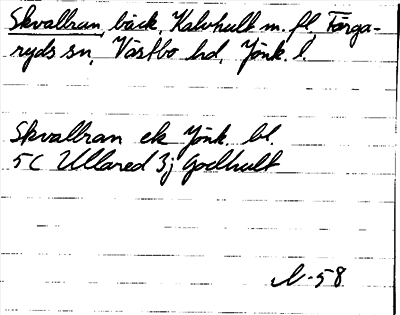 Skvallran, bäck, Kalvhult m. fl, Färga-
ryds sn, Västbo hd, Jönk. l.
Skvallran ek Jönk. bl.
5C Ullared 3j Godhult
-58